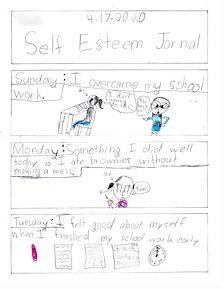 4-17-2020
Self Esteem Jornal
Sunday: I overcame my school
work.
Monday: Something I did well
today is I ate brownies without
making a mess.
Tuesday: I felt good about myself
when I finished my school work early